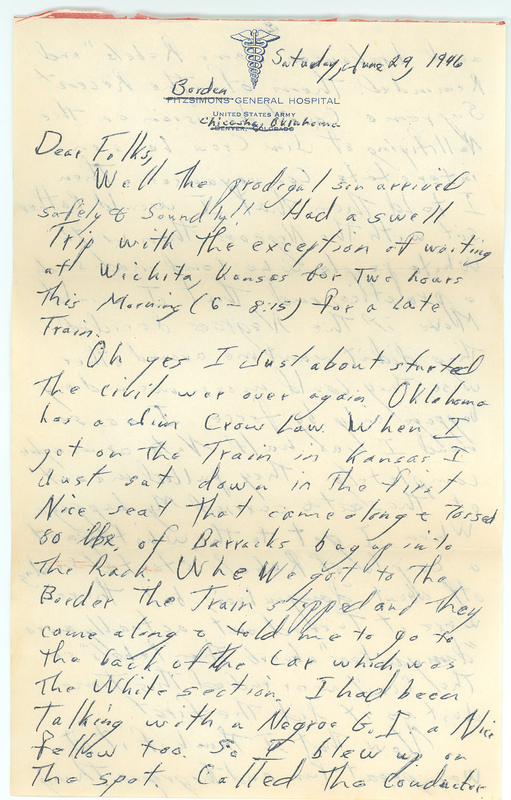 Saturday, June 29, 1946
Borden
FITZSIMONS GENERAL HOSPITAL
UNITED STATES ARMY
Chicasha, Oklahoma
DENVER, COLORADO
Dear Folks,
Well the prodigal son arrived
safely & soundly!! Had a swell
Trip with the exception of waiting
at Wichita, Kansas for Two hours
This Morning (6-8:15) for a late
Train.
Oh yes I Just about started
The civil war over again. Oklahoma
has a Jim Crow Law. When I
got on The Train in Kansas I
Just sat down in The first
Nice seat that came along & Tossed
80 lbs. of Barracks bag up into
The Rack. Whe We got to The
Border The Train stopped and they
came along & told me to go to
The back of the Car which was
The White section. I had been
Talking with a Negroe G.I. a Nice
fellow too. So I blew up on
The spot. Called The conductor